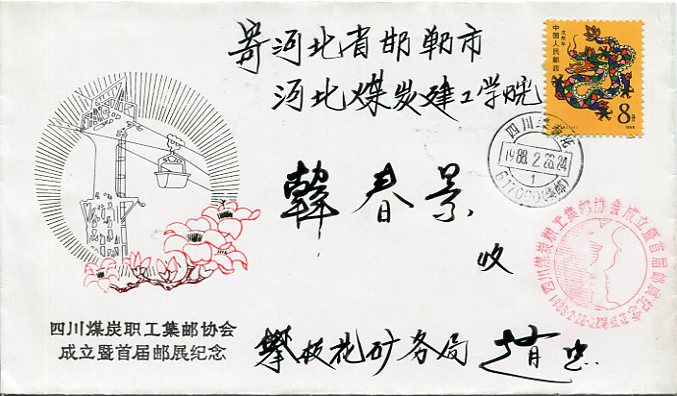 寄河北省邯郸市
河北煤炭建工学院
韩春景
收
攀枝花矿务局 赵忠
四川煤炭职工集邮协会
成立暨首届邮展纪念
戊辰年
中国人民邮政
8分
1988
四川
1988.2.26.24
1
617060
四川煤炭职工集邮协会成立暨首届邮展纪念